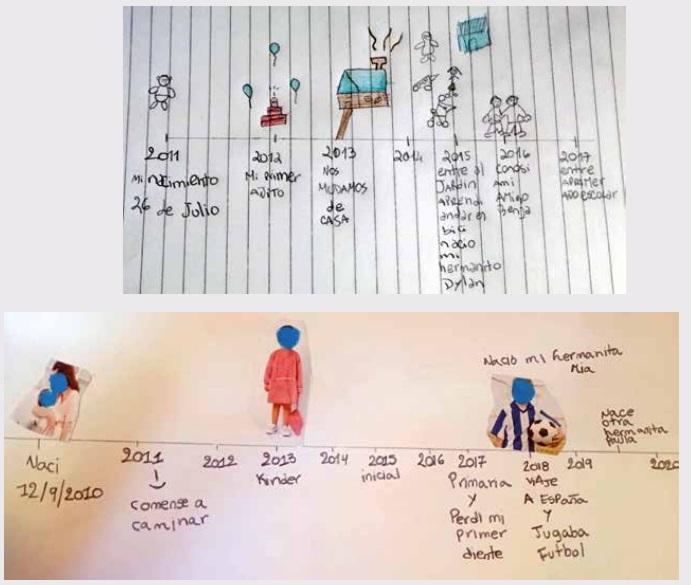 2011
Mi nacimiento
26 de Julio
2012
Mi primer
añito
2013
Nos
MUDAMOS
de
CASA
2014
2015
entre al
Jardin
Aprendi
andar en
bici
nacio
mi
hermanito
Dylan
2016
Conosi
Ami
Amigo
Benja
2017
entre
APRIMER
AÑO ESCOLAR
Naci
12/9/2010
2011
comense a
caminar
2012
2013
Kinder
2014
2015
inicial
2016
2017
Primaria
y
Perdi mi
primer
diente
Nacio mi hermanita
Mia
2018
ViAje
A ESPAÑA
y
Jugaba
Futbol
2019
Nace
otra
hermanita
Paula
2020